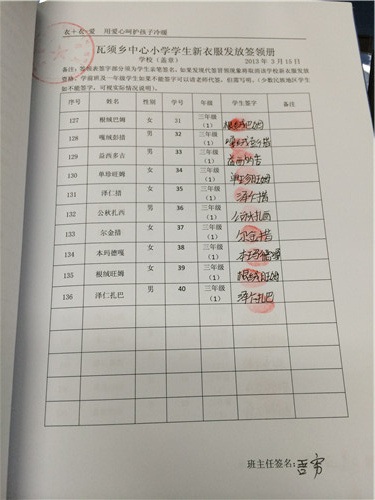 衣+衣·爱 用爱心呵护孩子冷暖
瓦须乡中心小学学生新衣服发放签领册
学校（盖章） 2013 年 3 月 15 日
备注：签领表签字部须为学生亲笔签名，如果发现代签冒领现象将取消该学校新衣服发放
资格。学前班及一年级学生如果不能签字可以请老师代签，但需写明。（少数民族地区学生
如不能签字，可视实际情况说明）。
序号 姓名 性别 学号 年级 学生签字 备注
127 根绒巴姆 女 31 三年级（1） 根绒巴姆
128 嘎绒彭措 男 32 三年级（1） 嘎绒彭措
129 益西多吉 男 33 三年级（1） 益西多吉
130 单珍旺姆 女 34 三年级（1） 单珍旺姆
131 泽仁措 女 35 三年级（1） 泽仁措
132 公秋扎西 男 36 三年级（1） 公秋扎西
133 尔金措 女 37 三年级（1） 尔金措
134 本玛德嘎 女 38 三年级（1） 本玛德嘎
135 根绒旺姆 女 39 三年级（1） 根绒旺姆
136 泽仁扎巴 男 40 三年级（1） 泽仁扎巴
班主任签名：